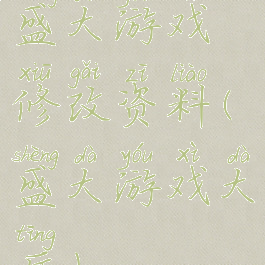 盛大游戏
xiū gǎi zī liào
修改资料(
shèng dà yóu xì dà
盛大游戏大
tīng